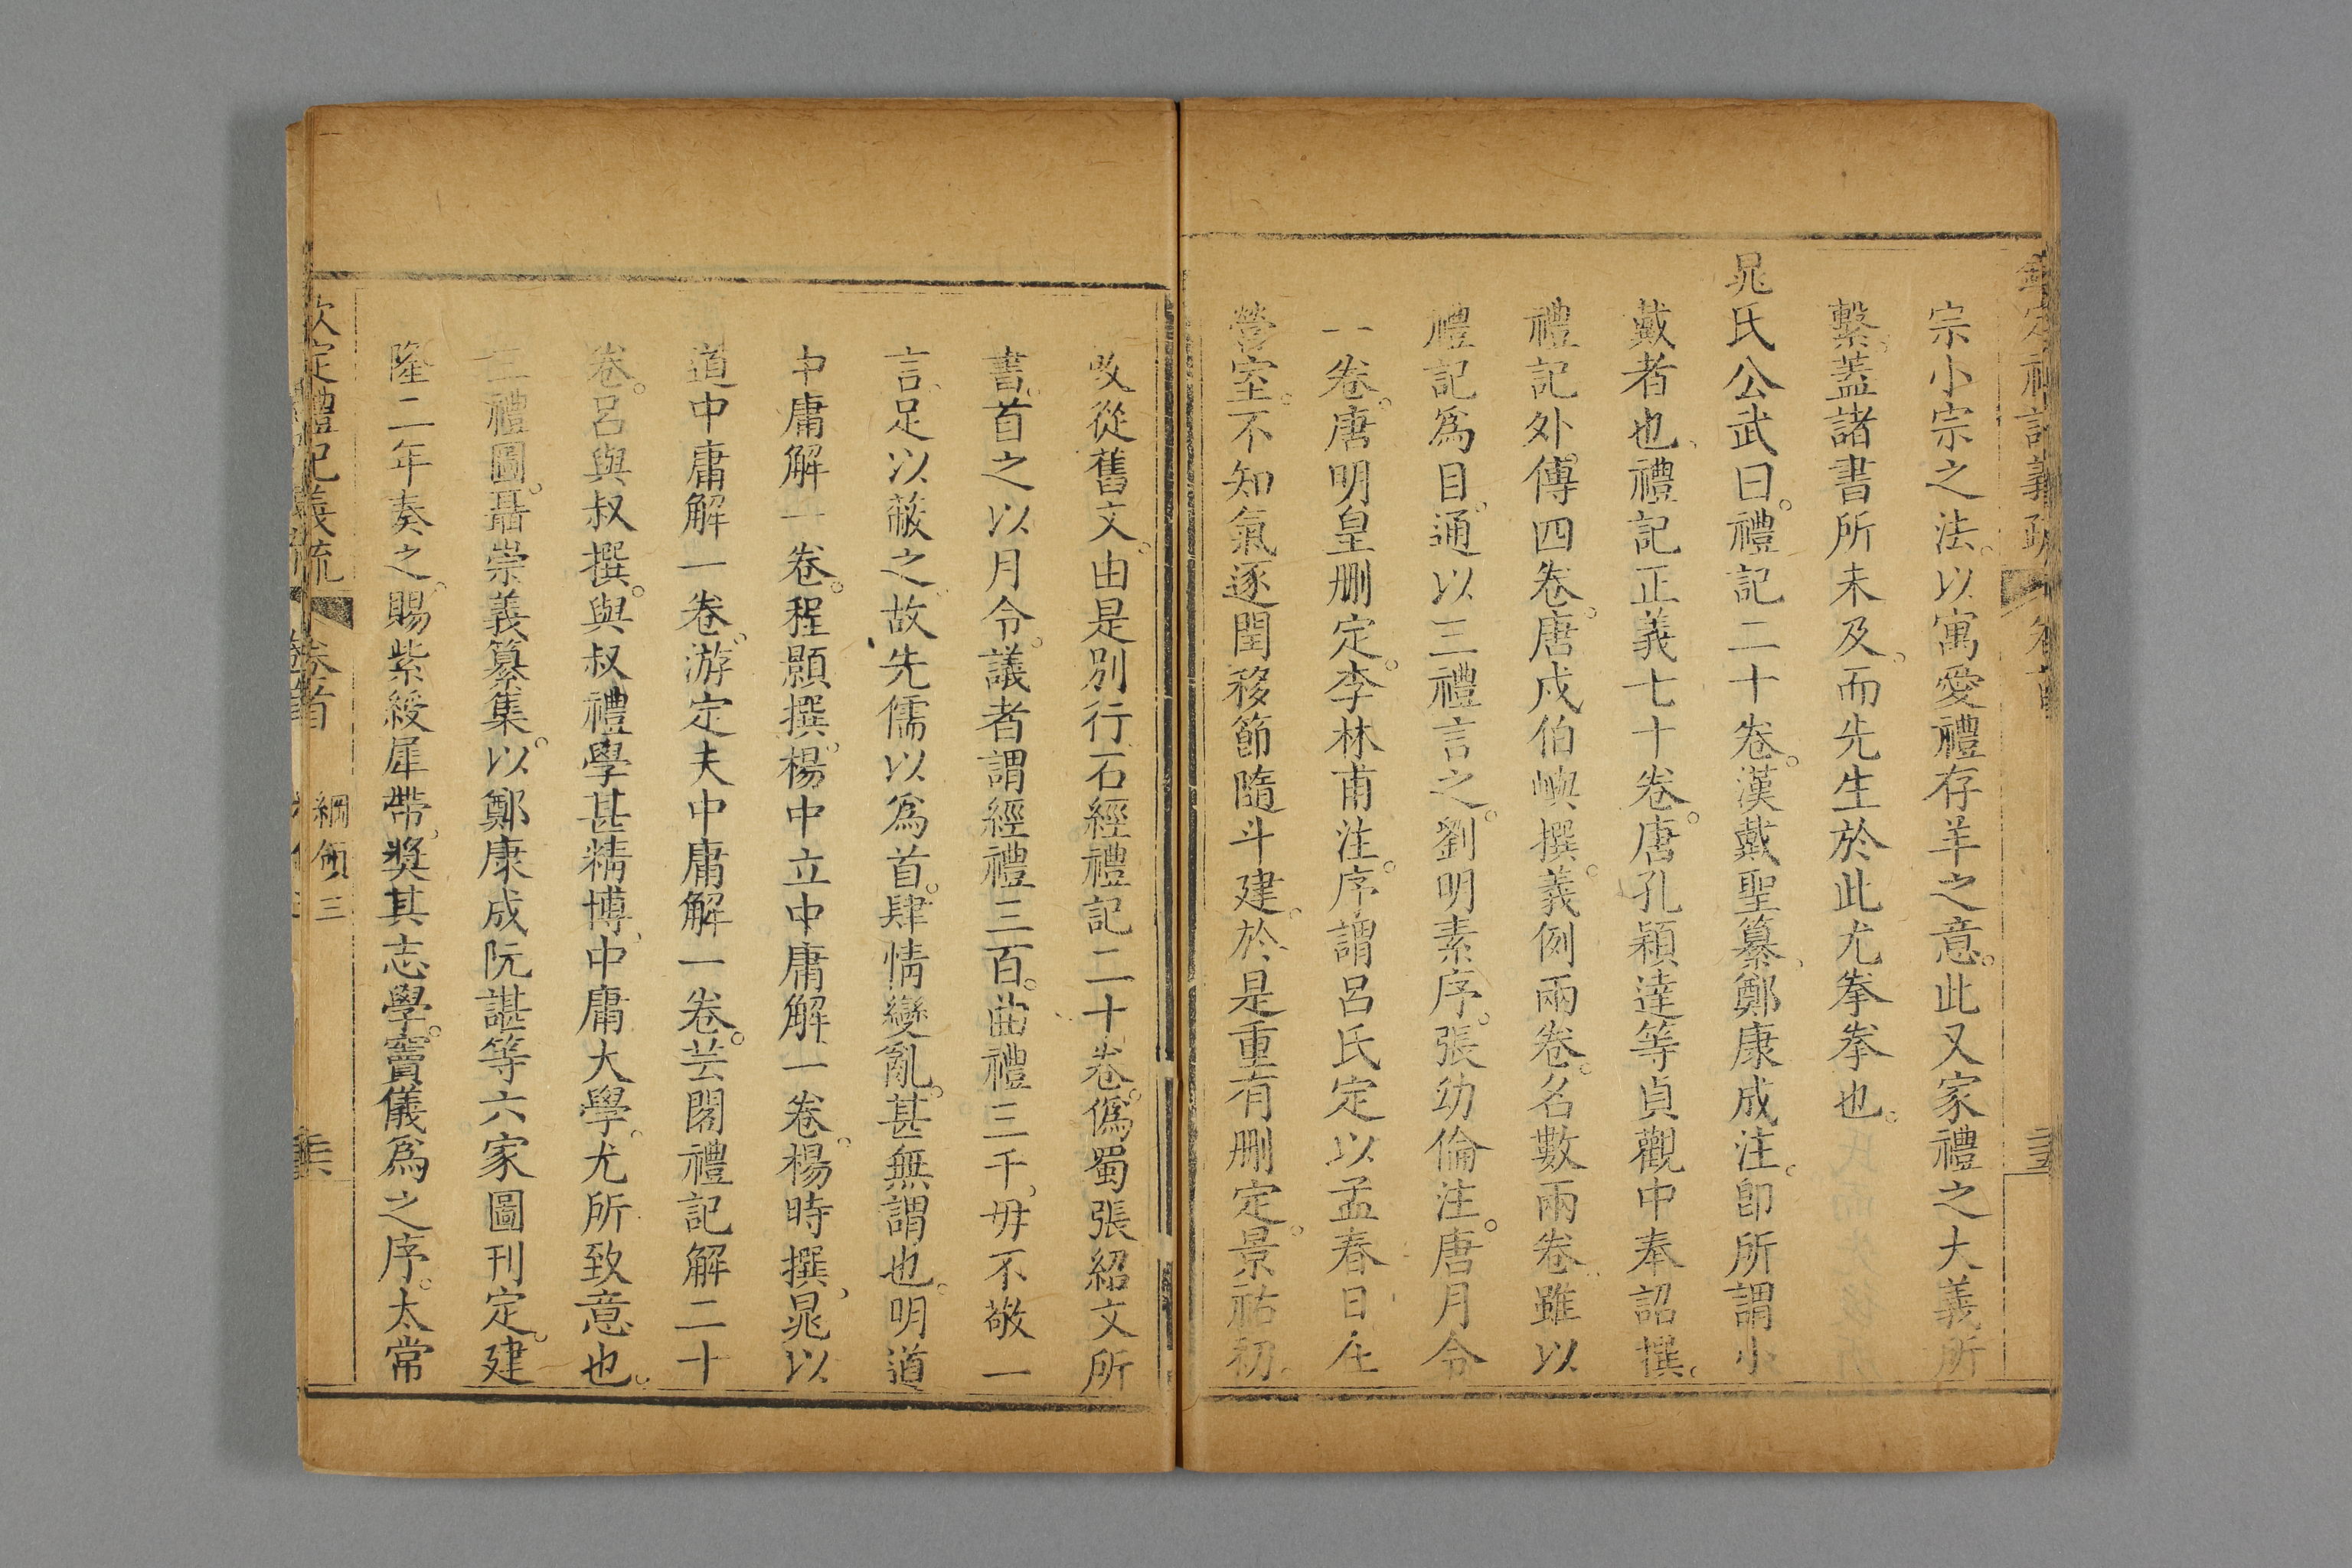 宗小宗之法。以寓愛禮存羊之意。此又家禮之大義所
繫。蓋諸書所未及。而先生於此尤拳拳也。
晁氏公武曰。禮記二十卷。漢戴聖纂、鄭康成注。卽所謂小
戴者也、禮記正義七十卷。唐孔穎達等貞觀中奉詔撰。
禮記外傳四卷。唐成伯嶼撰。義例兩卷。名數兩卷。雖以
禮記爲目。通以三禮言之。劉明素序。張幼倫注。唐月令
一卷。唐明皇刪定。李林甫注。序謂呂氏定以孟春日在
營室。不知氣逐閏移節隨斗建。於是重有刪定。景祐初。
改從舊文。由是別行石經禮記二十卷。僞蜀張紹文所
書。首之以月令。議者謂經禮三百。曲禮三千、毋不敬一
言、足以蔽之。故先儒以爲首。肆情變亂。甚無謂也。明道
中庸解一卷。程顥撰。楊中立中庸解一卷。楊時撰、晁以
道中庸解一卷。游定夫中庸解一卷。芸閣禮記解二十
卷。呂與叔撰。與叔禮學甚精博、中庸大學。尤所致意也。
三禮圖。聶崇義纂集。以鄭康成阮諶等六家圖刊定。建
隆二年奏之。賜紫綬犀帶、奬其志學。竇儀爲之序。太常
欽定禮記義疏 卷首 綱領三